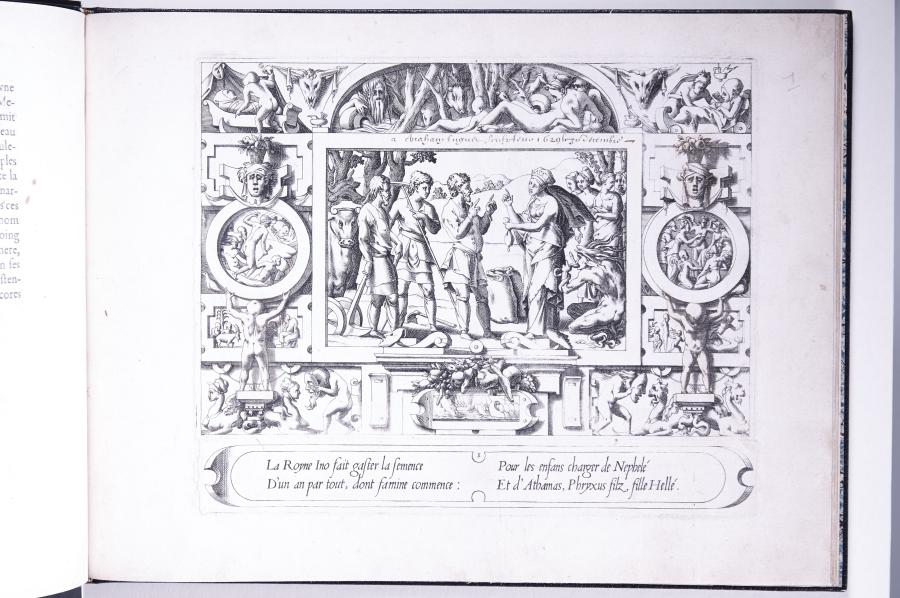 yne
Me-
mit
eau
ule-
ples
nar-
nom
oing
nere,
n ſes
ſten-
cores
a abraham
1
La Royne Ino fait gaſter la ſemence
D'un an par tout, dont famine commence :
Pour les enfans charger de Nephelé
Et d'Athamas, Phryxus filz, fille Hellé.